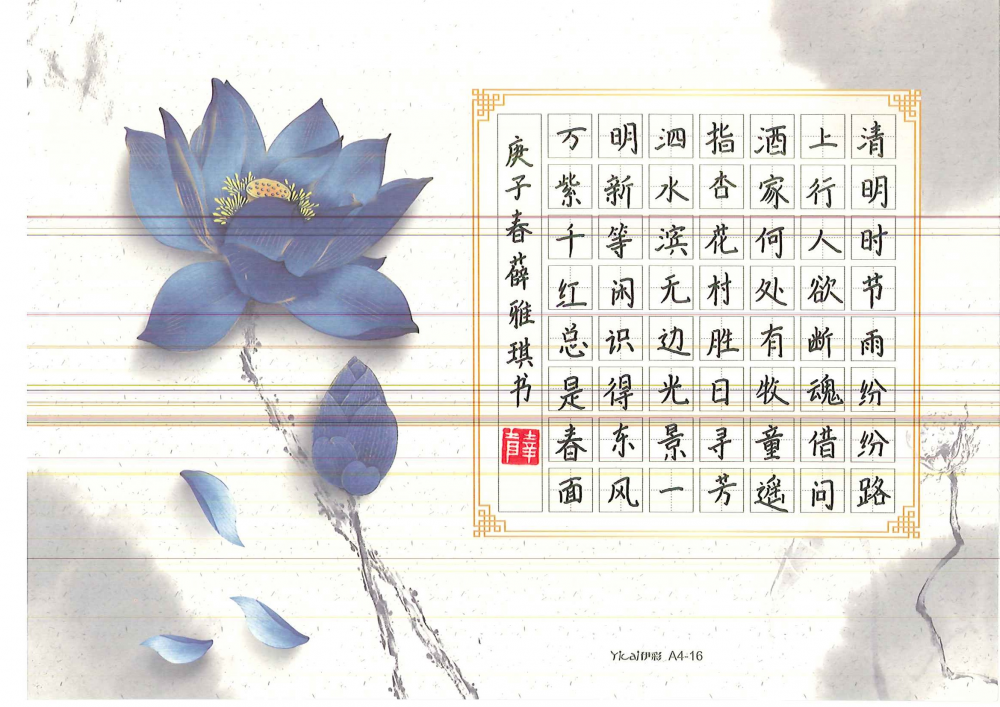 清明时节雨纷纷路
上行人欲断魂借问
酒家何处有牧童遥
指杏花村胜日寻芳
泗水滨无边光景一
明新等闲识得东风
万紫千红总是春面
庚子春薛雅琪书
Yicai伊彩 A4-16